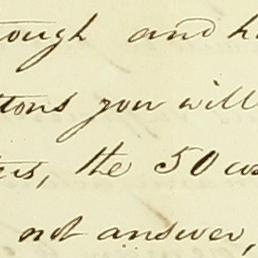 ough and h
tons you will
ers, the 50 co
not answer,